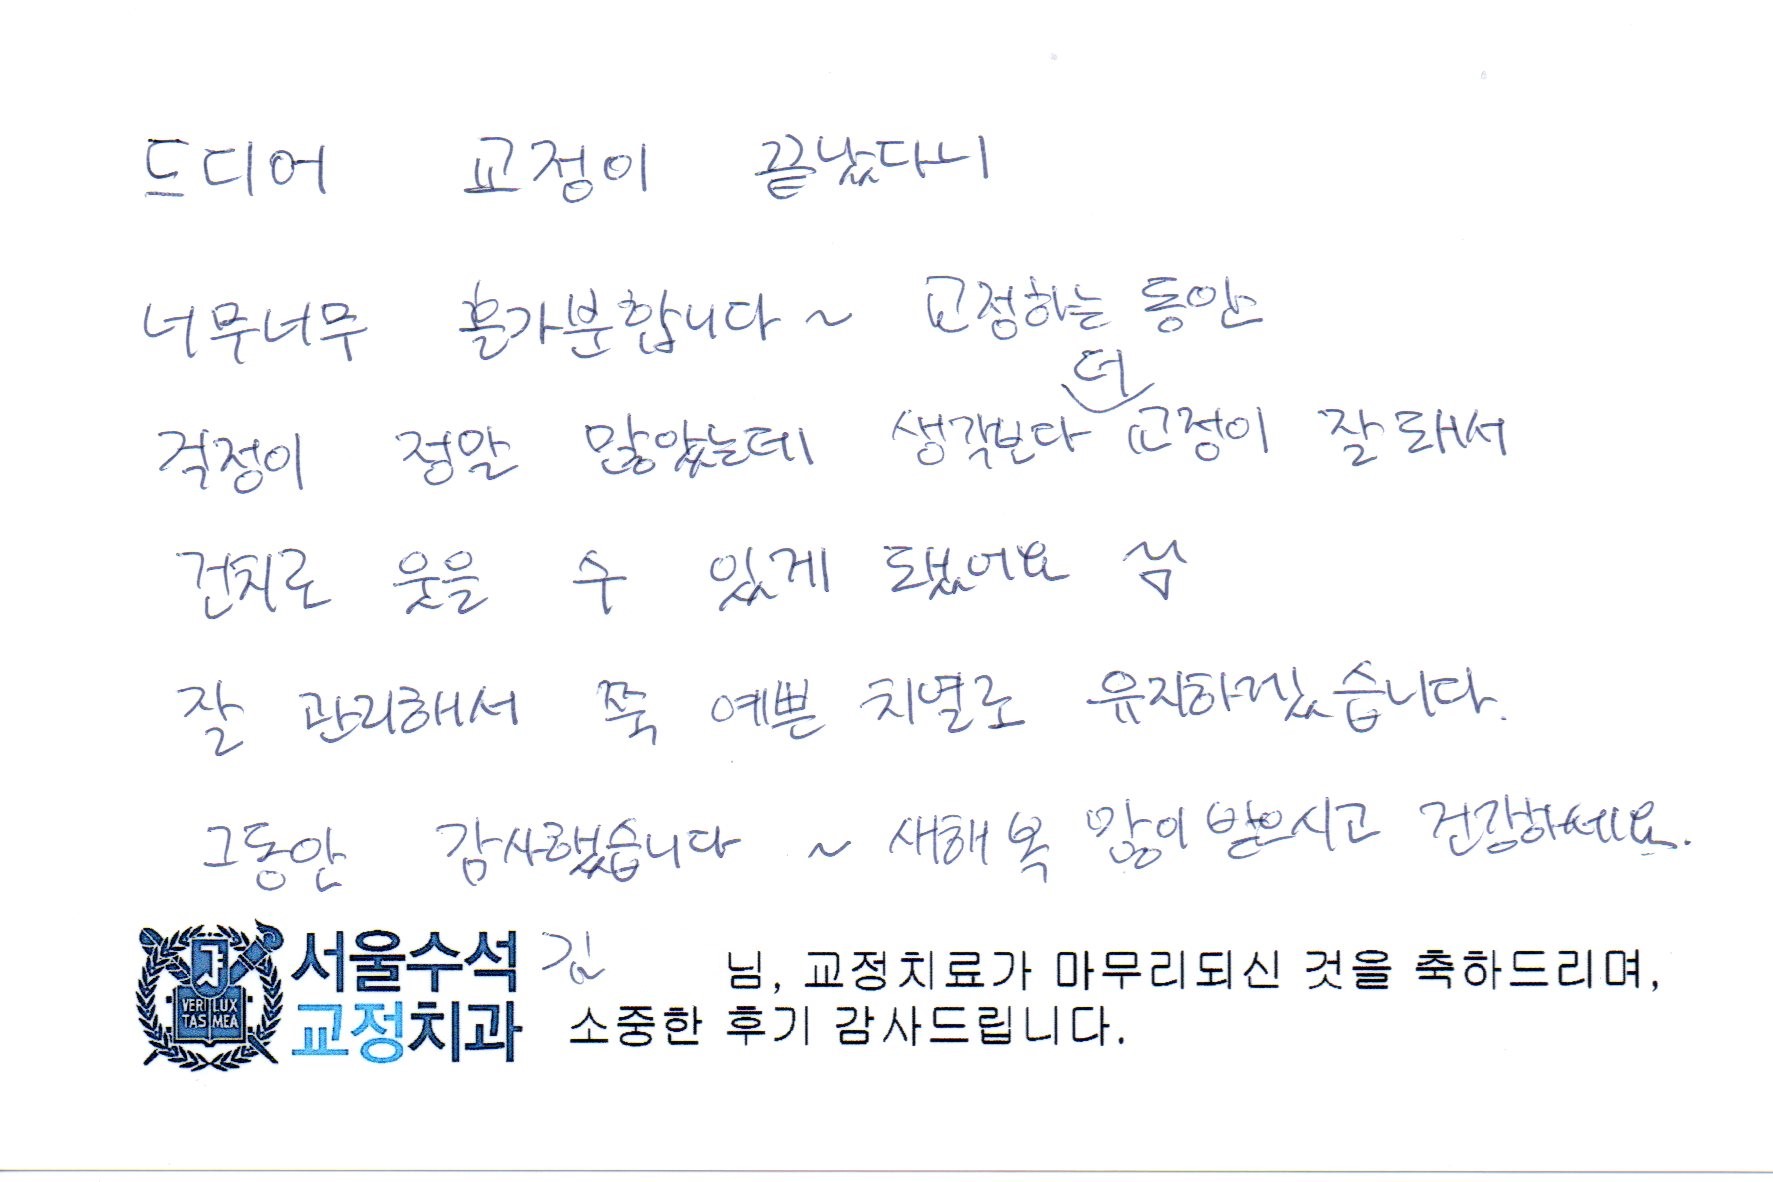 드디어 교정이 끝났다니
너무너무 홀가분합니다~ 교정하는 동안
걱정이 정말 많았는데 생각보다 더 교정이 잘 돼서
건치로 웃을 수 있게 됐어요 ^^
잘 관리해서 쭉 예쁜 치열로 유지하겠습니다.
그동안 감사했습니다 ~ 새해 복 많이 받으시고 건강하세요.
서울수석 김 님, 교정치료가 마무리되신 것을 축하드리며,
교정치과 소중한 후기 감사드립니다.
VERI LUX
TAS MEA